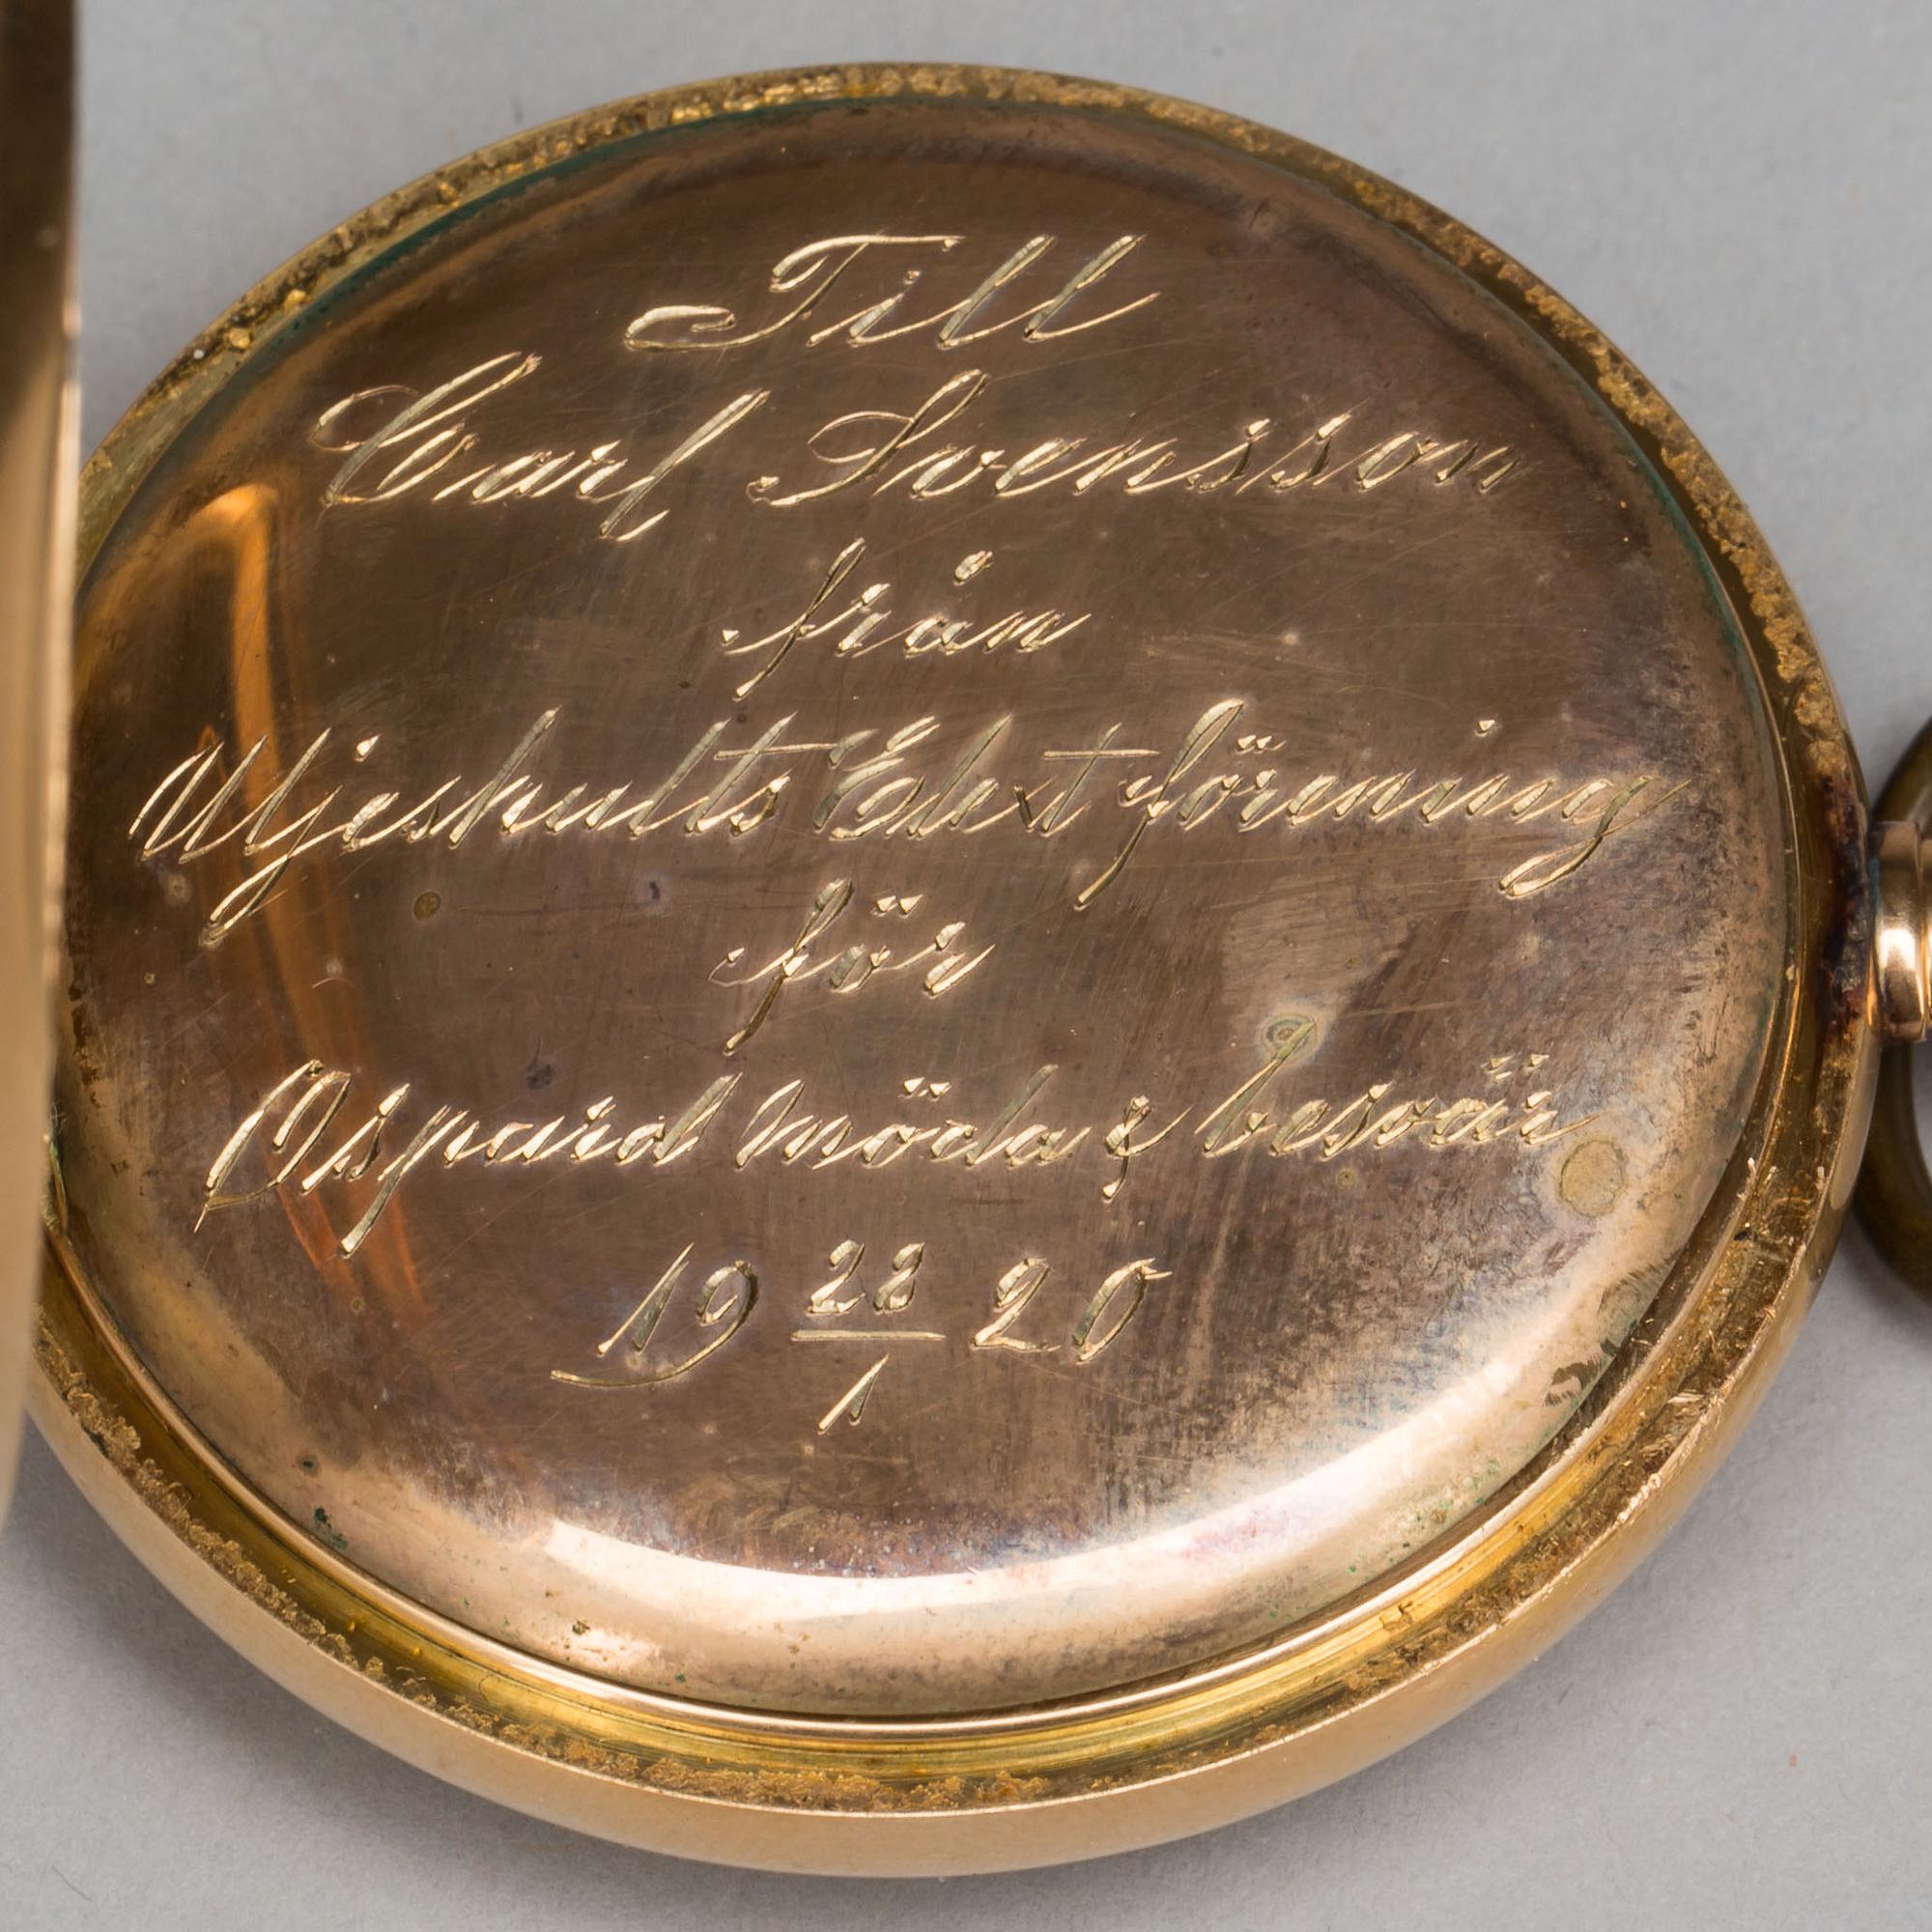 Till
Carl Svensson
från
Uljeshults Elekt förening
för
Ospard möda & besvär
19 28/1 20